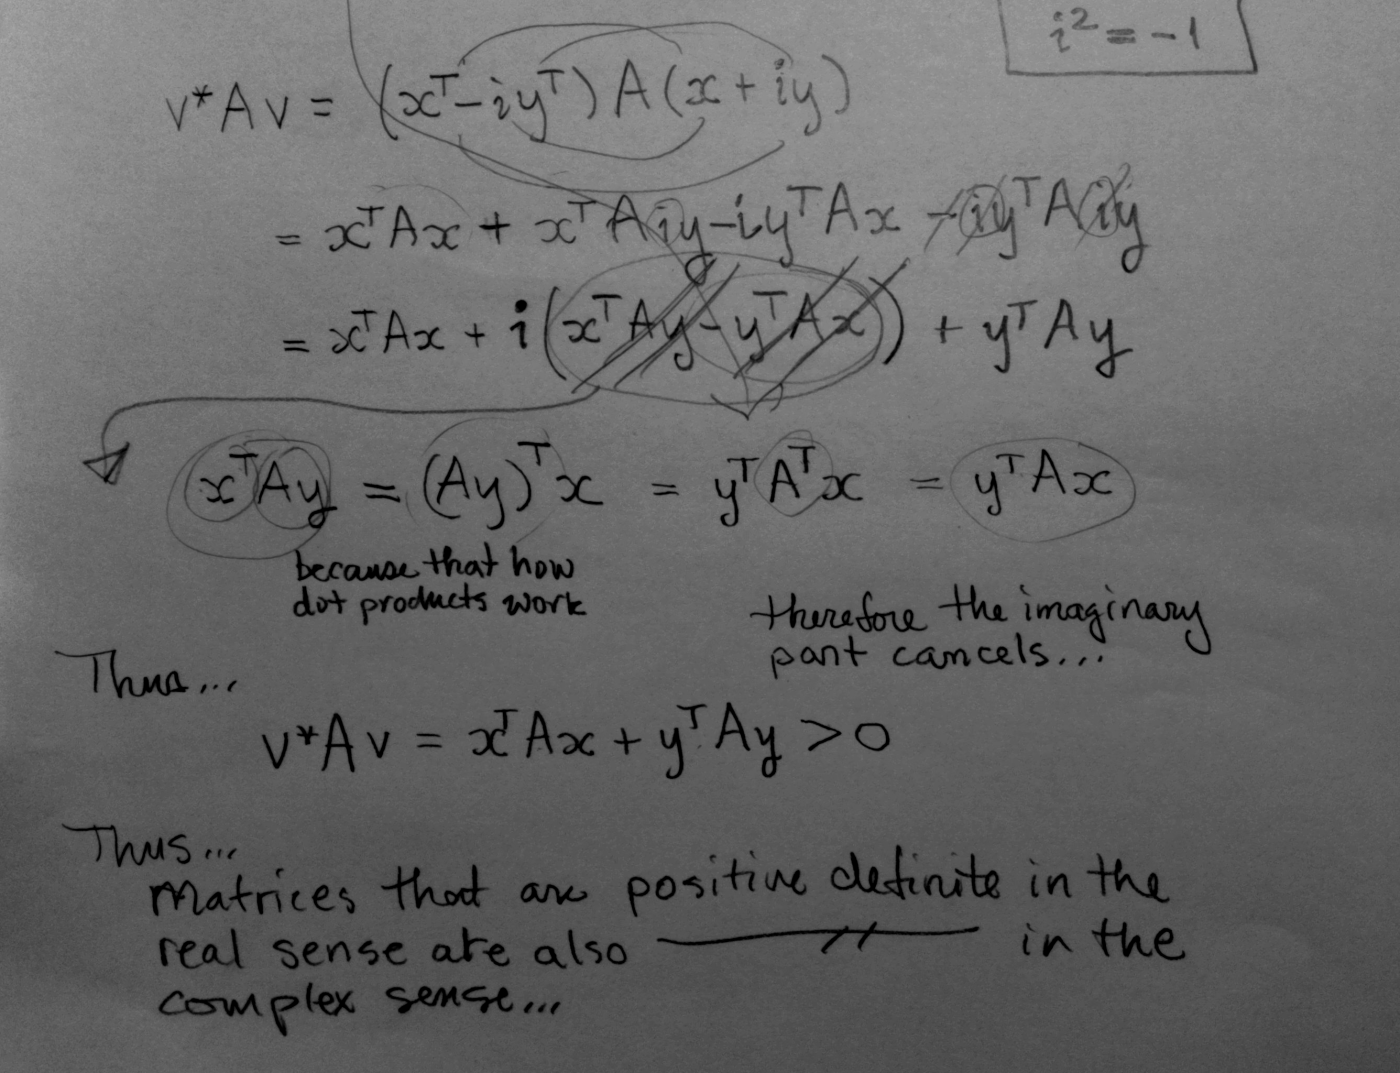 i² = -1
v*Av = (xᵀ - iyᵀ) A (x + iy)
= xᵀAx + xᵀAiy - iyᵀAx - iyᵀAiy
= xᵀAx + i(xᵀAy - yᵀAx) + yᵀAy
xᵀAy = (Ay)ᵀx = yᵀAᵀx = yᵀAx
because that how
dot products work
therefore the imaginary
part cancels...
Thus...
v*Av = xᵀAx + yᵀAy > 0
Thus...
Matrices that are positive definite in the
real sense are also —//— in the
complex sense...